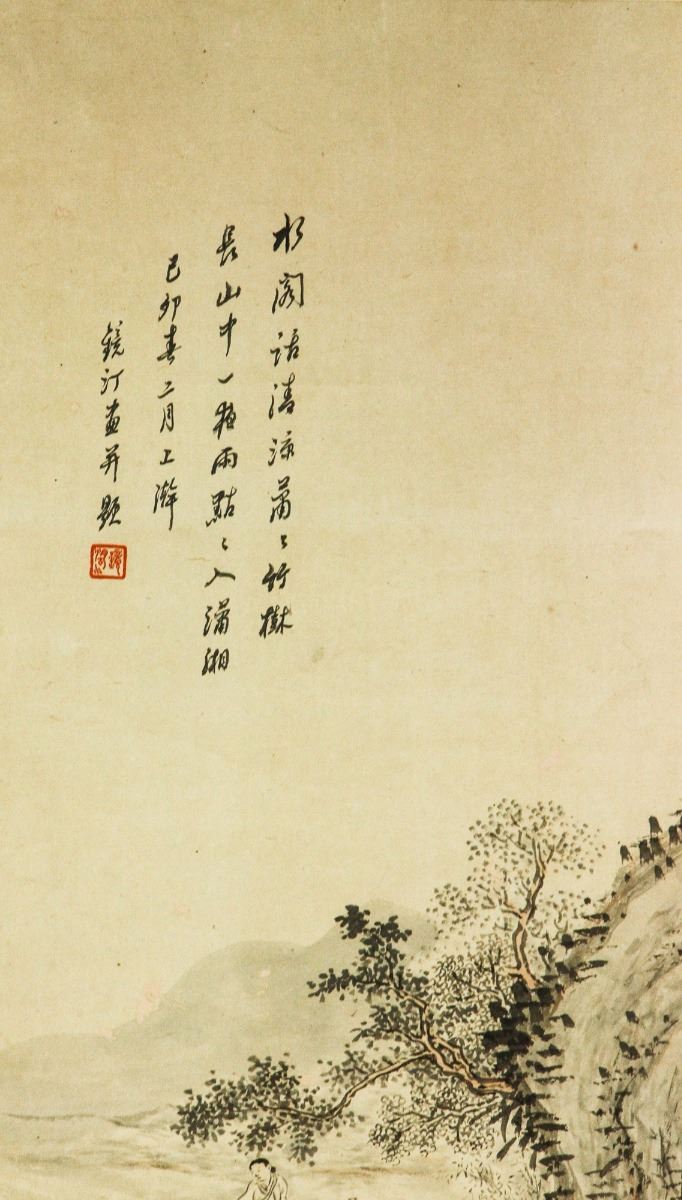 水阁话清涼蕭〻竹樹
長山中一夜雨點〻入瀟湘
己卯春二月上澣
鏡汀畫并題